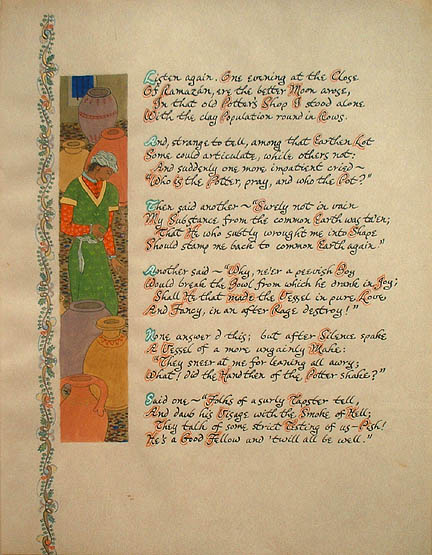 Listen again. One evening at the Close
Of Ramazán, ere the better Moon arose,
In that old Potter's Shop I stood alone
With the clay Population round in Rows.
And, strange to tell, among that Earthen Lot
Some could articulate, while others not:
And suddenly one more impatient cried~
"Who is the Potter, pray, and who the Pot?"
Then said another~ "Surely not in vain
My Substance from the common Earth was ta'en;
That He who subtly wrought me into Shape
Should stamp me back to common Earth again."
Another said~ "Why, ne'er a peevish Boy
Would break the Bowl from which he drank in Joy;
Shall He that made the Vessel in pure Love
And Fancy, in an after Rage destroy!"
None answer'd this; but after Silence spake
A Vessel of a more ungainly Make:
"They sneer at me for leaning all awry;
What! did the Hand then of the Potter shake?"
Said one~ "Folks of a surly Tapster tell,
And daub his Visage with the Smoke of Hell;
They talk of some strict Testing of us~ Pish!
He's a Good Fellow and 'twill all be well."